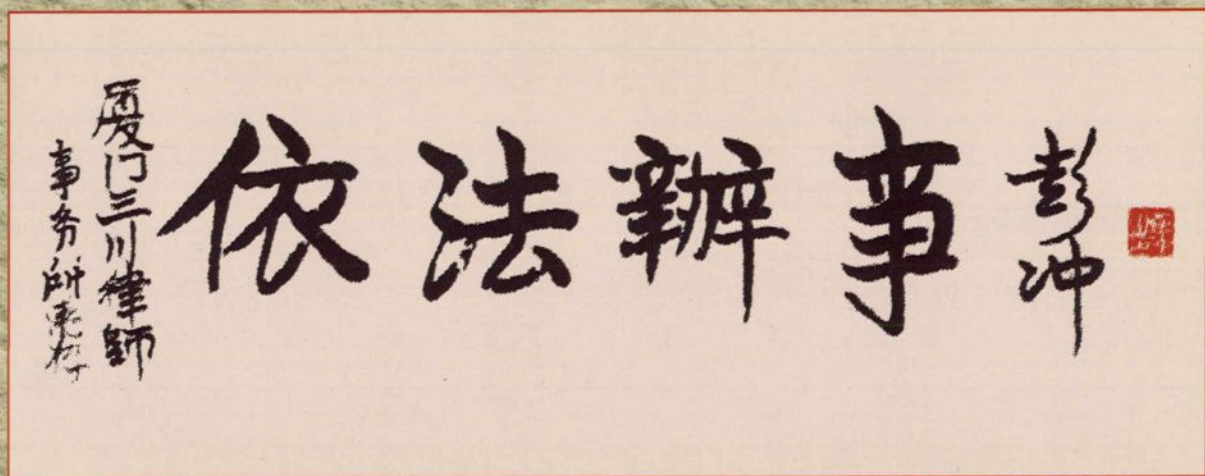 厦门三川律師
事务所惠存
依法辦事
彭冲